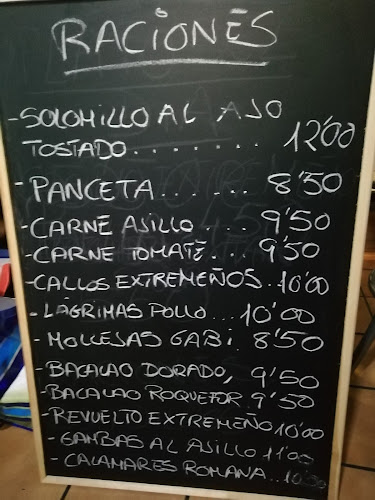 RACIONES
- SOLOMILLO AL AJO
TOSTADO........ 12'00
- PANCETA...... 8'50
- CARNE AJILLO... 9'50
- CARNE TOMATE... 9'50
- CALLOS EXTREMEÑOS. 10'00
- LAGRIMAS POLLO... 10'00
- MOLLEJAS GABI. 8'50
- BACALAO DORADO, 9'50
- BACALAO ROQUEFOR. 9'50
- REVUELTO EXTREMEÑO 10'00
- GAMBAS AL AJILLO 11'00
- CALAMARES ROMANA...